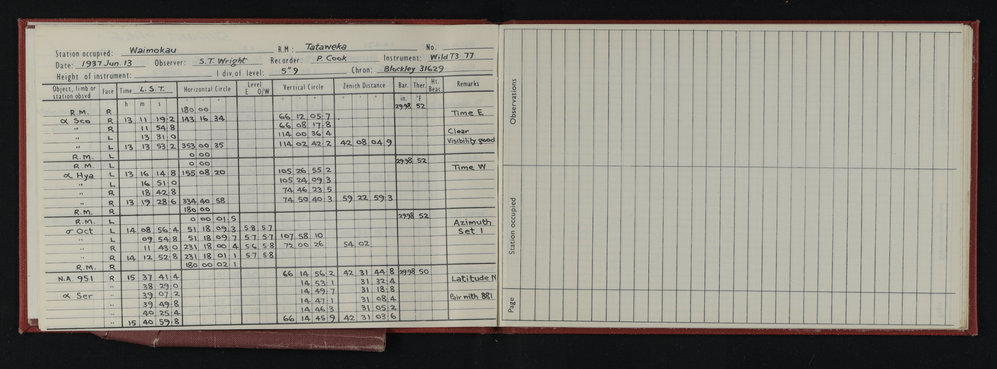 Station occupied: Waimokau R.M: Tataweka No.
Date: 1937 Jun. 13 Observer: S.T. Wright Recorder: P. Cook Instrument: Wild T3 77
Height of instrument: 1 div. of level: 5"9 Chron: Blackley 31629
Object, limb or station obsvd Face Time L.S.T. Horizontal Circle Level E O/W Vertical Circle Zenith Distance Bar. Ther. Ht. Beac. Remarks
h m s ° ' " ° ' " ° ' " in. °F
R.M. R 180 00 29.98 52
α Sco R 13 11 19.2 143 16 34 66 12 05.7 Time E
" R 11 54.8 66 08 17.8
" L 13 31.0 114 00 36.4 Clear
" L 13 13 53.2 353 00 35 114 02 42.2 42 08 04.9 Visibility good
R.M. L 0 00
R.M. L 0 00 29.98 52
α Hya L 13 16 14.8 155 08 20 105 26 55.2 Time W
" L 16 51.0 105 24 09.3
" R 18 42.8 74 46 23.5
" R 13 19 28.6 334 40 58 74 50 40.3 59 22 59.3
R.M. R 180 00
R.M. L 0 00 01.5 29.98 52
σ Oct L 14 08 56.4 51 18 09.3 5.8 5.7 Azimuth
" L 09 54.8 51 18 09.7 5.7 5.7 107 58 10 Set 1
" R 11 43.0 231 18 00.4 5.6 5.8 72 00 26 54 02
" R 14 12 52.8 231 18 01.1 5.7 5.8
R.M. R 180 00 02.1
N.A. 951 R 15 37 41.4 66 14 56.2 42 31 44.8 29.98 50
" 38 29.0 14 53.1 31 32.4 Latitude N
α Ser " 39 07.2 14 49.7 31 18.8
" 39 49.8 14 47.1 31 08.4 Pair with 881
" 40 25.4 14 46.3 31 05.2
" 15 40 59.8 66 14 45.9 42 31 03.6
Observations
Station occupied
Page